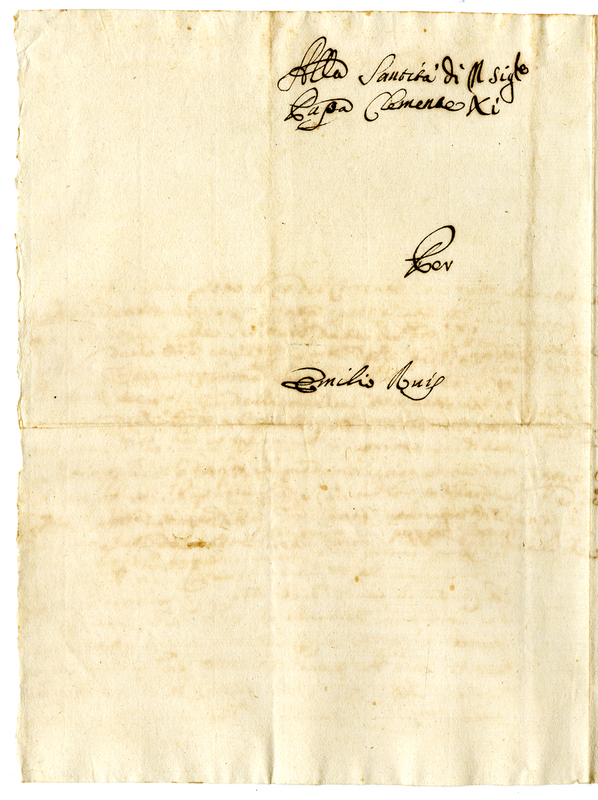 Alla Santità di N Sig.re
Papa Clemente Xi
Per
Emilio Ruiz